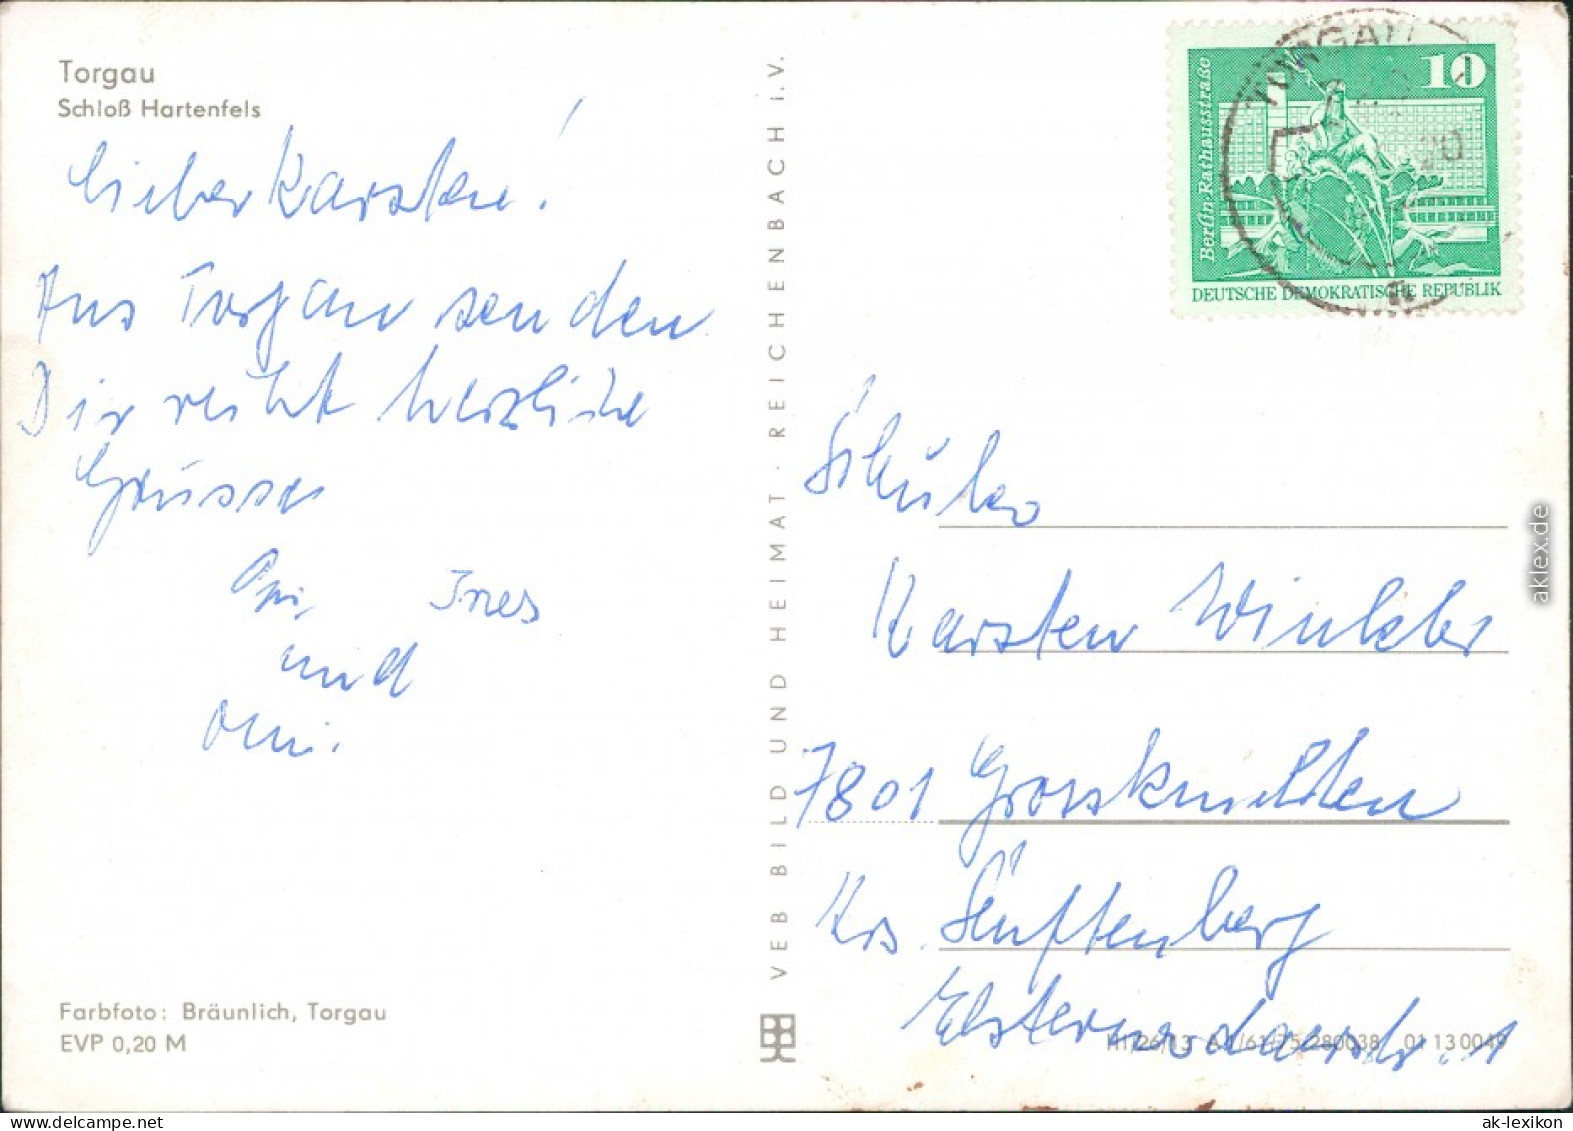 Torgau
Schloß Hartenfels
Lieber Karsten!
Aus Torgau senden
Dir recht herzliche
Grüsse
Opi, Ines
und
Omi.
Farbfoto: Bräunlich, Torgau
EVP 0,20 M
VEB BILD UND HEIMAT · REICHENBACH i.V.
TORGAU
10
Berlin·Rathausstraße
DEUTSCHE DEMOKRATISCHE REPUBLIK
Schüler
Karsten Winkler
7801 Grosskmehlen
Krs. Senftenberg
Elsterwerdaerstr. 1
III/26/13 A 1/61/75 280038 01 13 0049
aklex.de
ak-lexikon